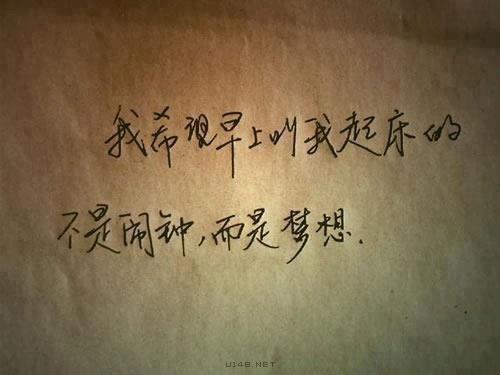 我希现早上叫我起床的
不是闹钟,而是梦想.
U148.NET